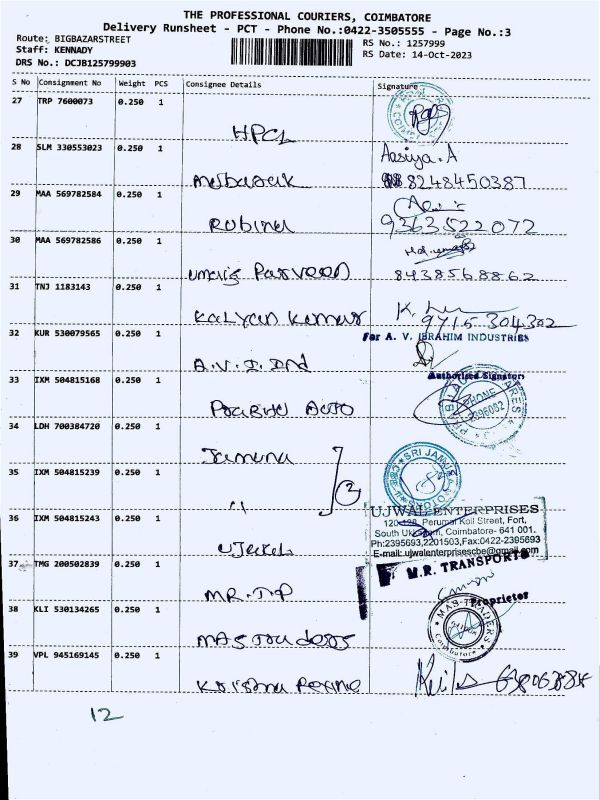 THE PROFESSIONAL COURIERS, COIMBATORE
Delivery Runsheet - PCT - Phone No.:0422-3505555 - Page No.:3
Route: BIGBAZARSTREET
RS No.: 1257999
Staff: KENNADY
RS Date: 14-Oct-2023
DRS No.: DCJB125799903
S No Consignment No Weight PCS Consignee Details Signature
27 TRP 7600073 0.250 1
HPCL
28 SLM 330553023 0.250 1
Aasiya.A
8248450387
29 MAA 569782584 0.250 1
Rubina
9363522072
30 MAA 569782586 0.250 1
Parveen
8438568862
31 TNJ 1183143 0.250 1
Kalyan Kumar
9715 304302
32 KUR 530079565 0.250 1
For A. V. IBRAHIM INDUSTRIES
A.V.I. Ind
Authorised Signatory
33 IXM 504815168 0.250 1
Auto
PHONE
2396052
34 LDH 700384720 0.250 1
Jamuna
SRI JAMUNA
35 IXM 504815239 0.250 1
2
36 IXM 504815243 0.250 1
UJWAL ENTERPRISES
120-128, Perumal Koil Street, Fort,
South Coimbatore- 641 001.
Ph:2395693,2201503,Fax:0422-2395693
E-mail: ujwalenterprisescbe@gmail.com
37 TMG 200502839 0.250 1
M.R. TRANSPORTS
MR.TP
Proprietor
38 KLI 530134265 0.250 1
MAS TRADERS
Coimbatore
Mas Traders
39 VPL 945169145 0.250 1
Krishna
12